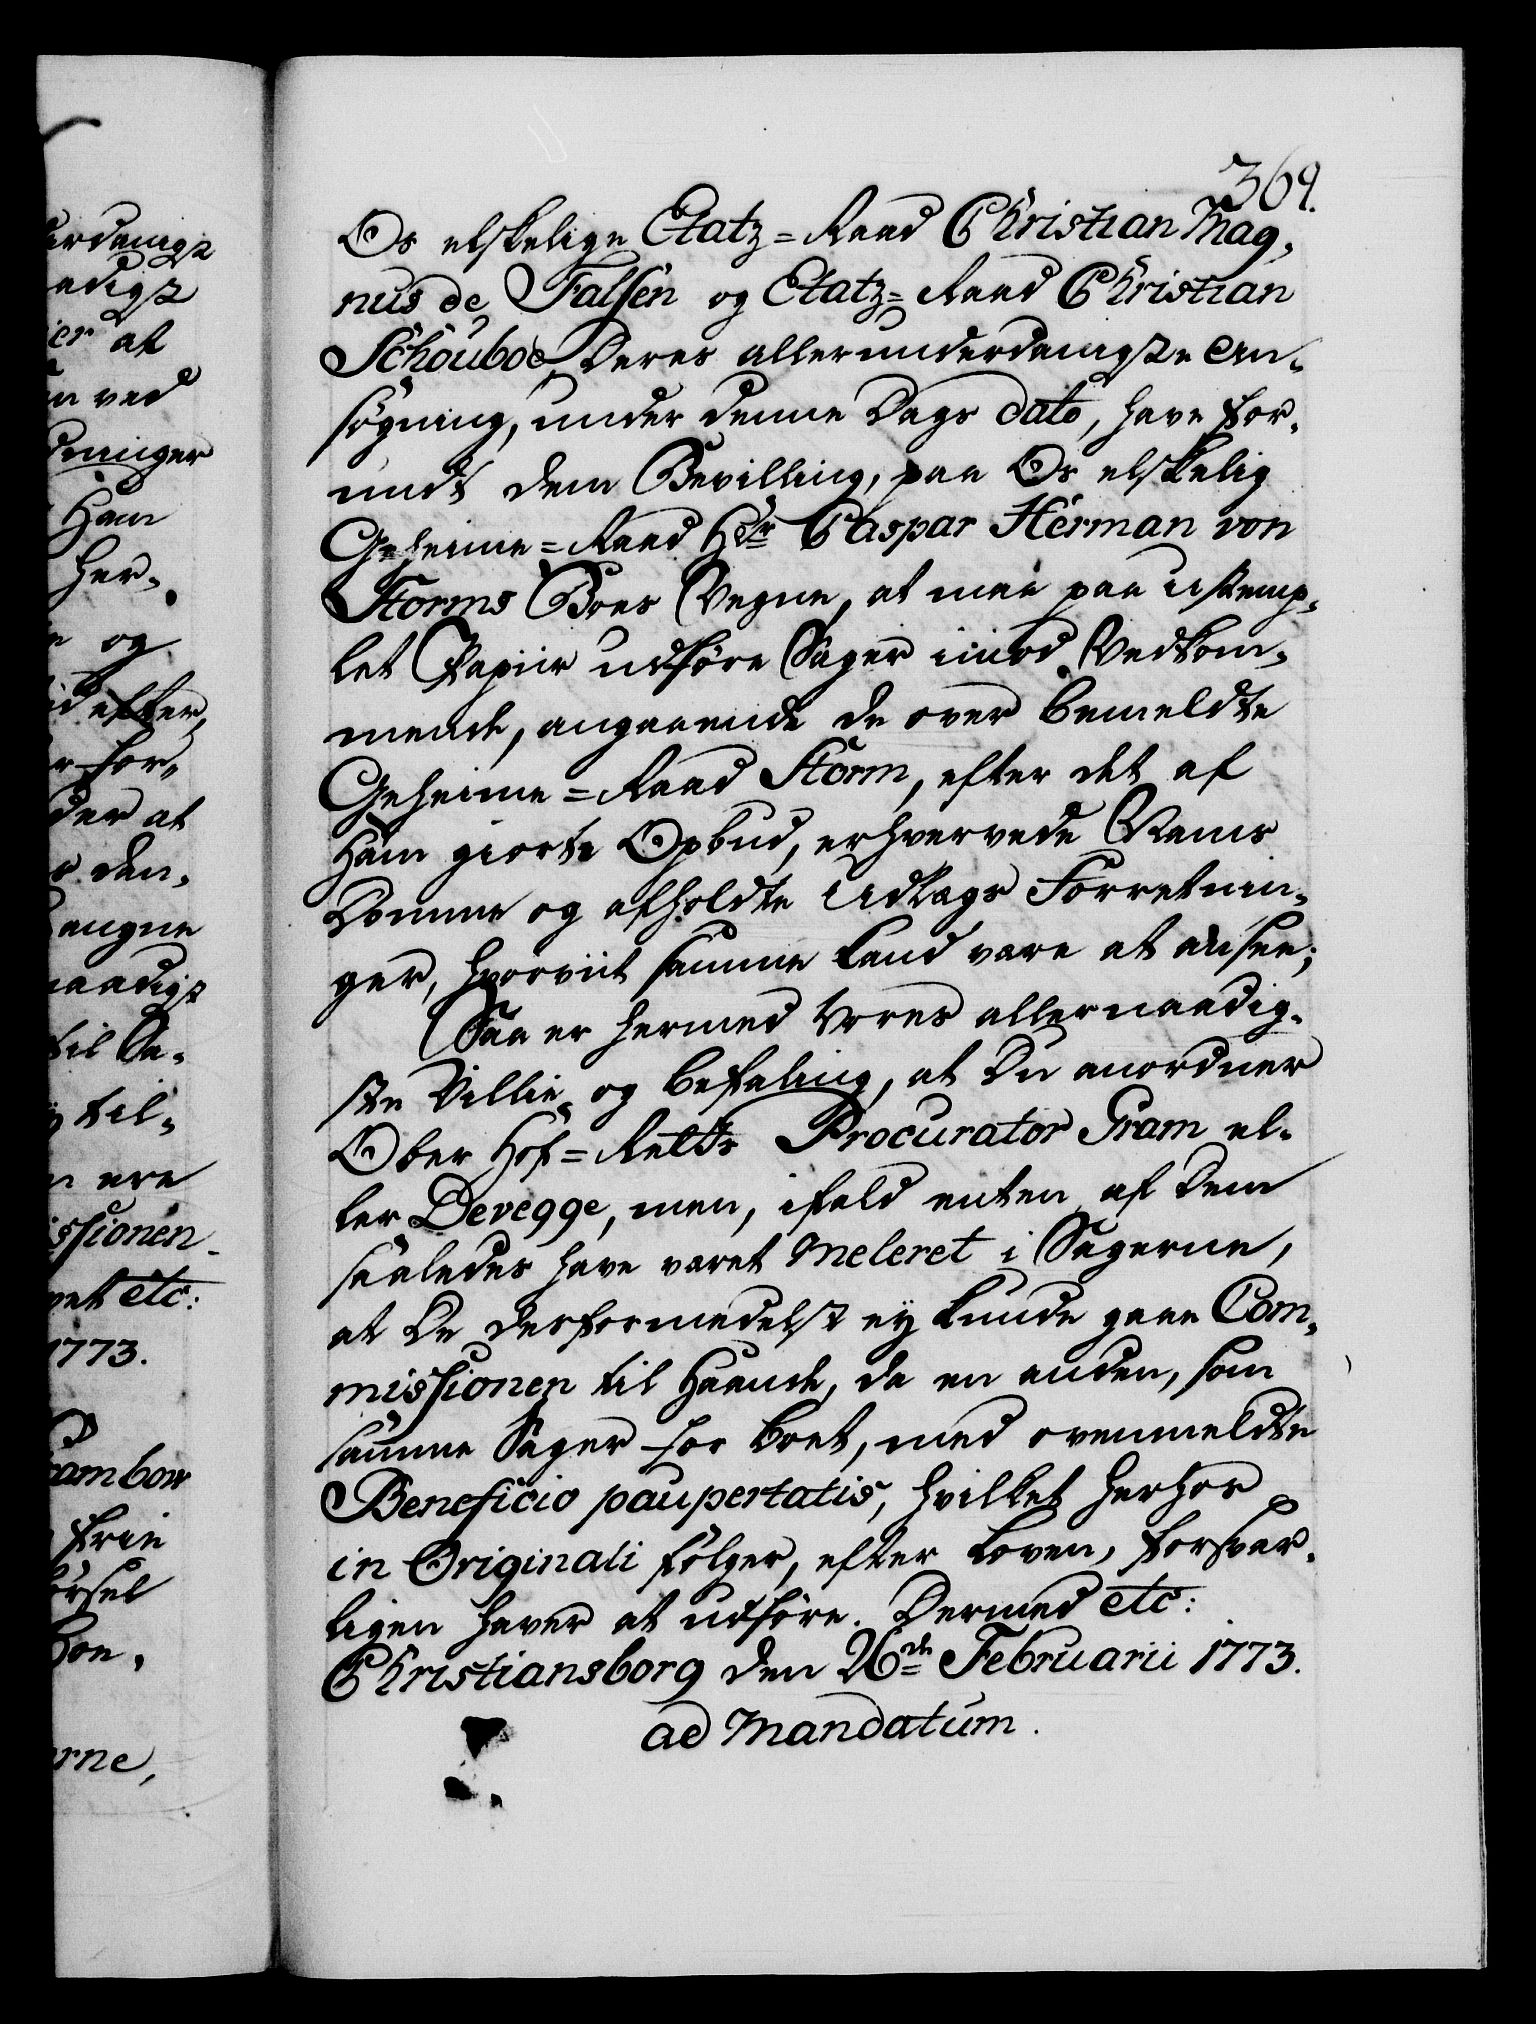 369.
Os elskelige Etatz=Raad Christian Mag,
nus de Falsen og Etatz=Raad Christian
Schouboe Deres allerunderdanigste An,
søgning, under denne Dags dato, have for,
undt dem Bevilling, paa Os elskelig
Geheime=Raad Hr Caspar Herman von
Storms Boes Vegne, at maa paa ustemp,
let Papiir udføre Sager imod Vedkom,
mende, angaaende de over bemeldte
Geheime=Raad Storm, efter det af
Ham giorte Opbud, erhvervede Nams
Domme og afholdte Udlægs Forretnin,
ger, hvorviit samme kand være at ansee;
Saa er hermed Vores allernaadig,
ste Villie og befaling, at Du anordner
Ober Hof=Retts Procurator Gram el,
ler Devegge, men, ifald enten af dem
saaledes have været meleret i Sagerne,
at De derformedelst ey kunde gaae Com,
missionen til Haande, da en anden, som
samme Sager for boet, med ovenmeldte
Beneficio paupertatis, hvilket herhos
in Originali følger, efter Loven, forsvar,
ligen haver at udføre. Dermed etc:
Christiansborg den 26de Februarii 1773.
ad Mandatum.
erdanigst
aadigst
ier at
en ved
dninger
Ham
her,
og
efter,
for,
der at
den,
naadigst
til Sa,
til,
ere
issionen
etc:
1773.
frie
rne,